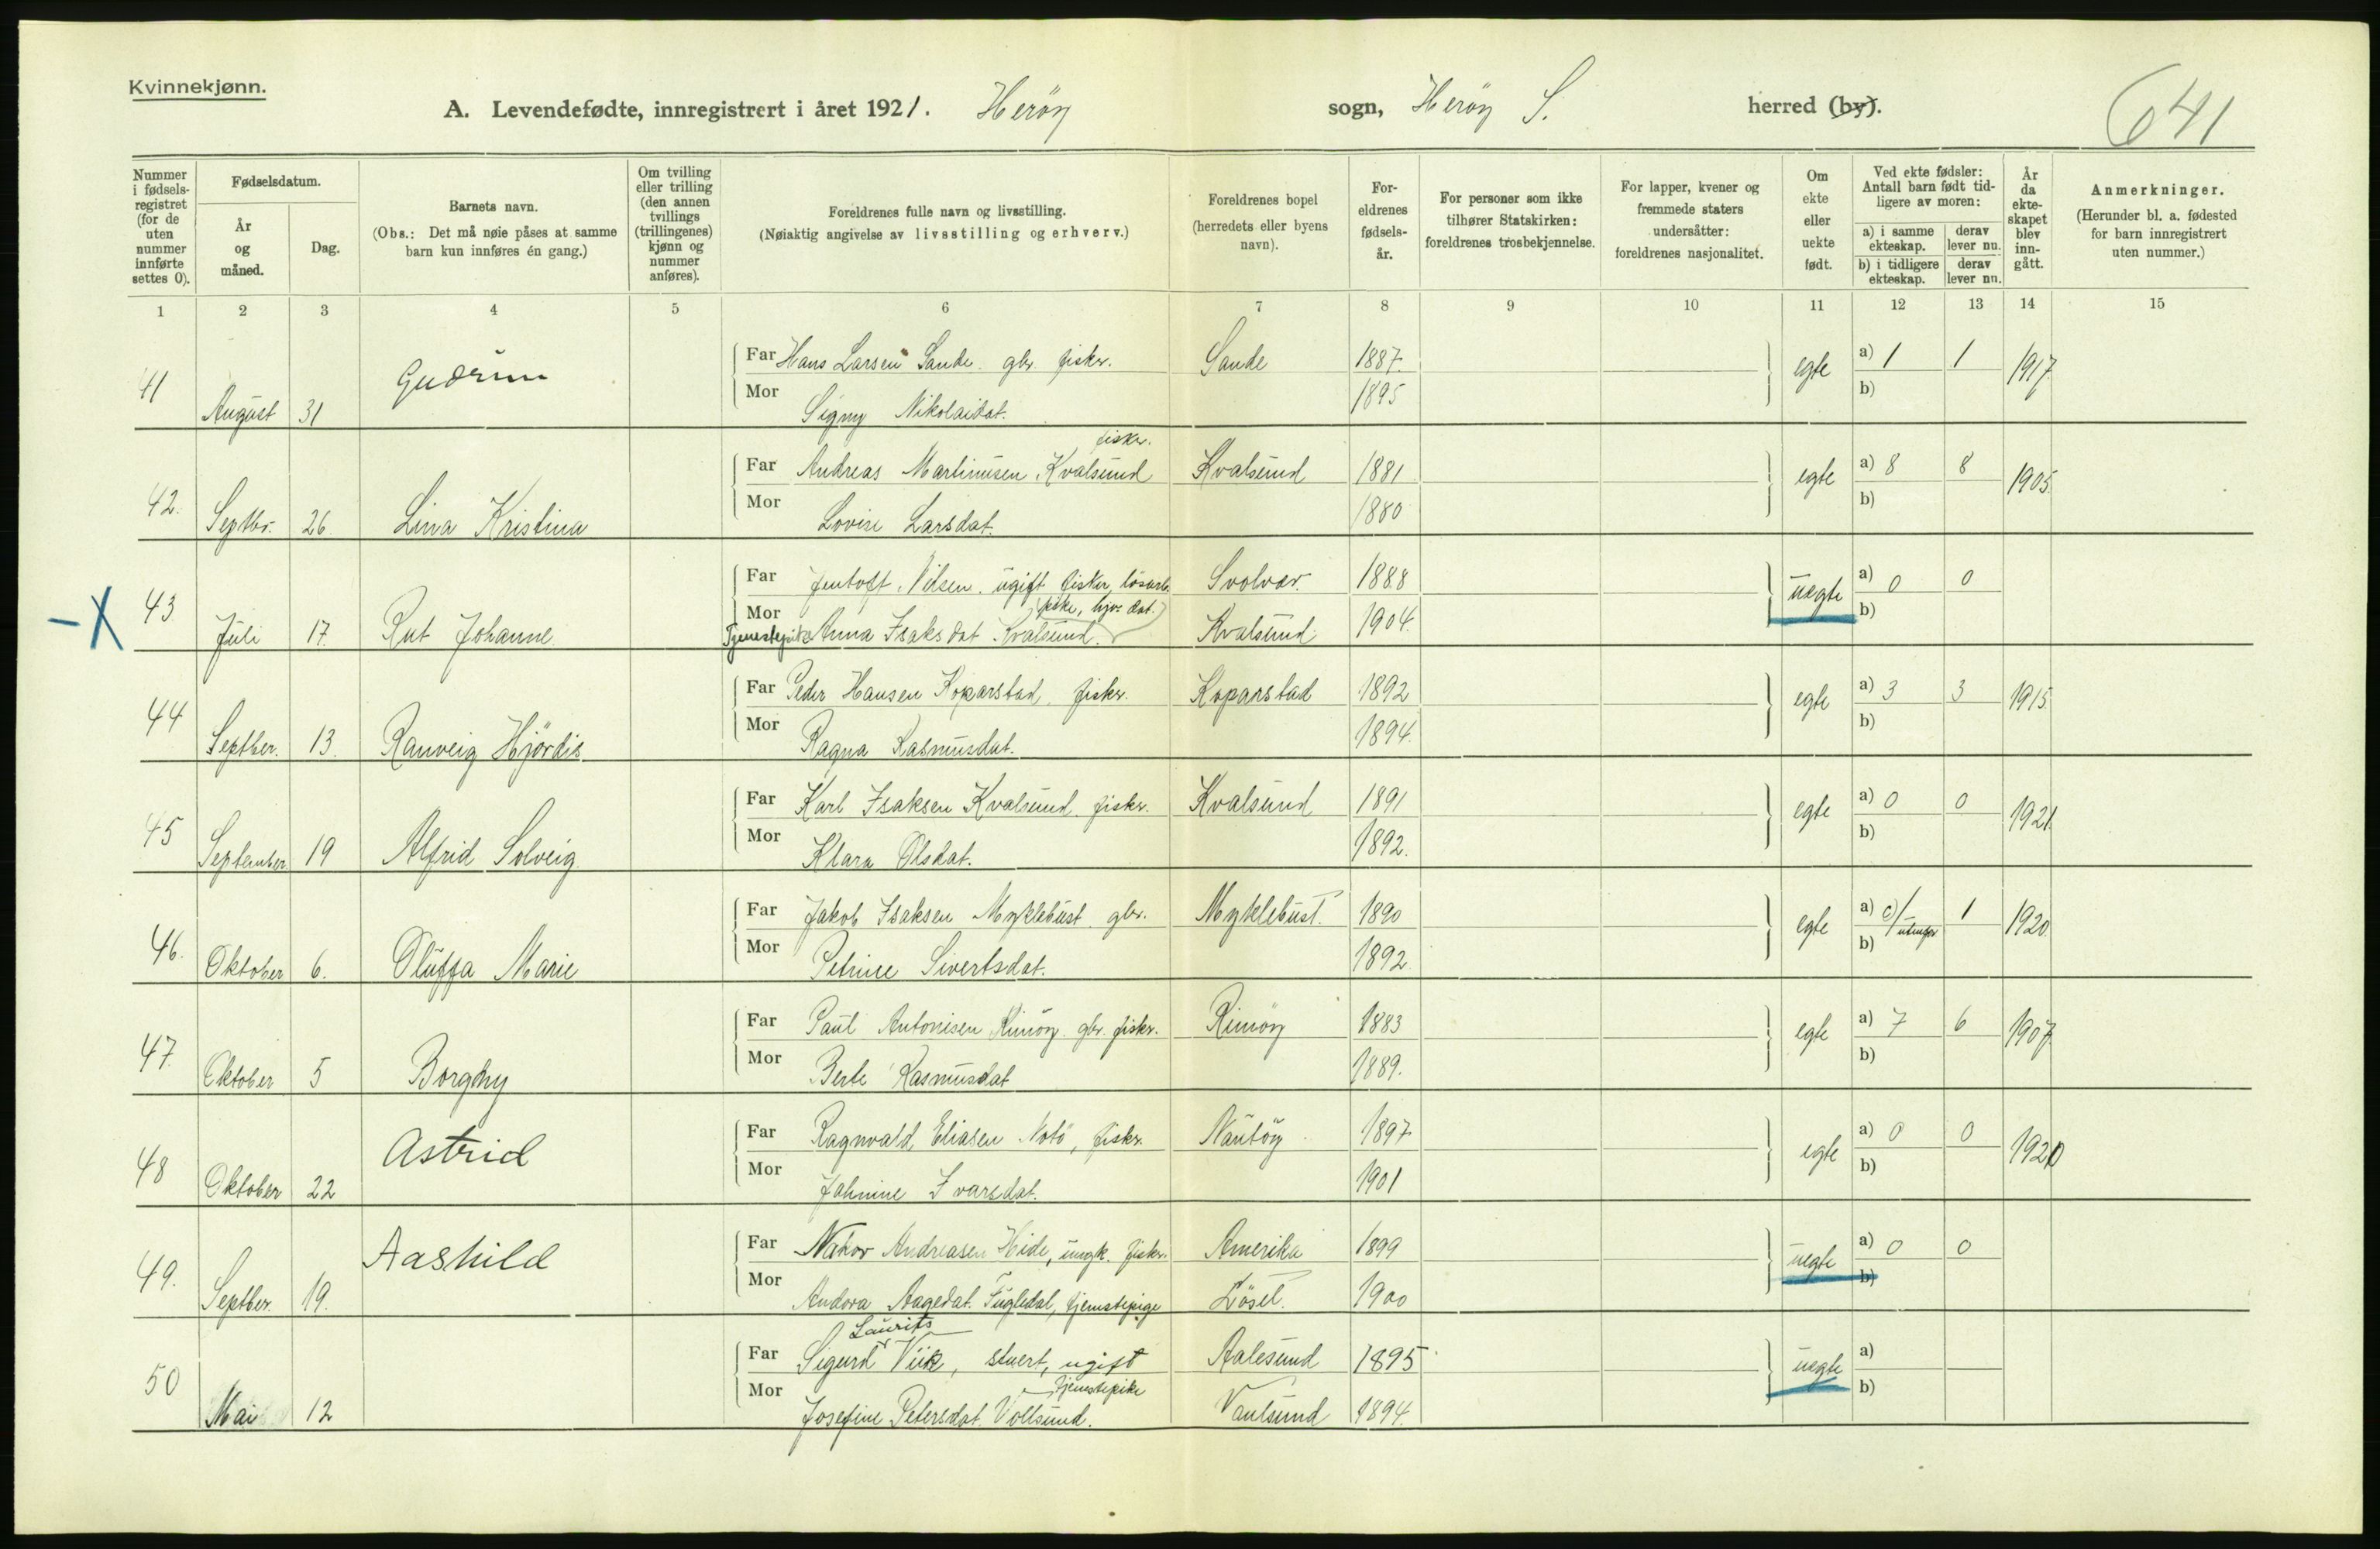 Kvinnekjønn.
A. Levendefødte, innregistrert i året 1921. Herøy sogn, Herøy S. herred (by).
641
Nummer i fødsels-registret (for de uten nummer innførte settes 0).
Fødselsdatum.
År og måned.
Dag.
Barnets navn.
(Obs.: Det må nøie påses at samme barn kun innføres én gang.)
Om tvilling eller trilling (den annen tvillings (trillingenes) kjønn og nummer anføres).
Foreldrenes fulle navn og livsstilling.
(Nøiaktig angivelse av livsstilling og erhverv.)
Foreldrenes bopel (herredets eller byens navn).
For-eldrenes fødsels-år.
For personer som ikke tilhører Statskirken: foreldrenes trosbekjennelse.
For lapper, kvener og fremmede staters undersåtter: foreldrenes nasjonalitet.
Om ekte eller uekte født.
Ved ekte fødsler: Antall barn født tid-ligere av moren:
a) i samme ekteskap.
derav lever nu.
b) i tidligere ekteskap.
derav lever nu.
År da ekte-skapet blev inn-gått.
Anmerkninger.
(Herunder bl. a. fødested for barn innregistrert uten nummer.)
1 2 3 4 5 6 7 8 9 10 11 12 13 14 15
Far Hans Larsen Sande gbr fisker. Sande 1887. egte a) 1 1 1917
41 August 31 Gudrun
Mor Signy Nikolaidat. 1895 b)
fisker.
Far Andreas Martinusen Kvalsund Kvalsund 1881 egte a) 8 8 1905.
42. Septbr. 26. Lina Kristina
Mor Lovise Larsdat. 1880 b)
Far Jentoft Nilsen ugift fisker, Svolvær. 1888 uegte a) 0 0
-X 43 Juli 17. Rut Johanne
Mor Tjenestepike Anna Isaksdat Kvalsund. Kvalsund 1904. b)
Far Peder Hansen Koparstad, fisker. Koparstad 1892 egte a) 3 3 1915.
44 Septber. 13. Ranveig Hjördis
Mor Ragna Rasmusdat. 1894. b)
Far Karl Isaksen Kvalsund fisker. Kvalsund 1891 egte a) 0 0 1921.
45 September 19 Alfrid Solveig
Mor Klara Olsdat. 1892. b)
Far Jakob Isaksen Myklebust gbr. Myklebust. 1890 egte a) 1 1920.
46. Oktober 6. Oluffa Marie
Mor Petrine Sivertsdat. 1892 b)
Far Paul Antonisen Rimöy gbr. fisker. Rimöy 1883 egte a) 7 6 1907
47. Oktober 5 Borghy
Mor Berte Rasmusdat 1889. b)
Far Ragnvald Eliasen Notö, fisker. Nautöy 1897 egte a) 0 0 1920
48 Oktober 22 Astrid
Mor Jahnine Ivarsdat. 1901 b)
Far Nakor Andreasen Hide, ungk. fisker. Amerika 1899 uegte a) 0 0
49. Septber. 19. Aashild
Mor Andora Aagedat. Fugledal, tjenstepige Löset. 1900 b)
Laurits
Far Sigurd Viik, stuert, ugift Aalesund 1895 uegte a)
50 Mai 12
tjenstepike
Mor Josefine Petersdat Voltsund. Vaulsund 1894. b)